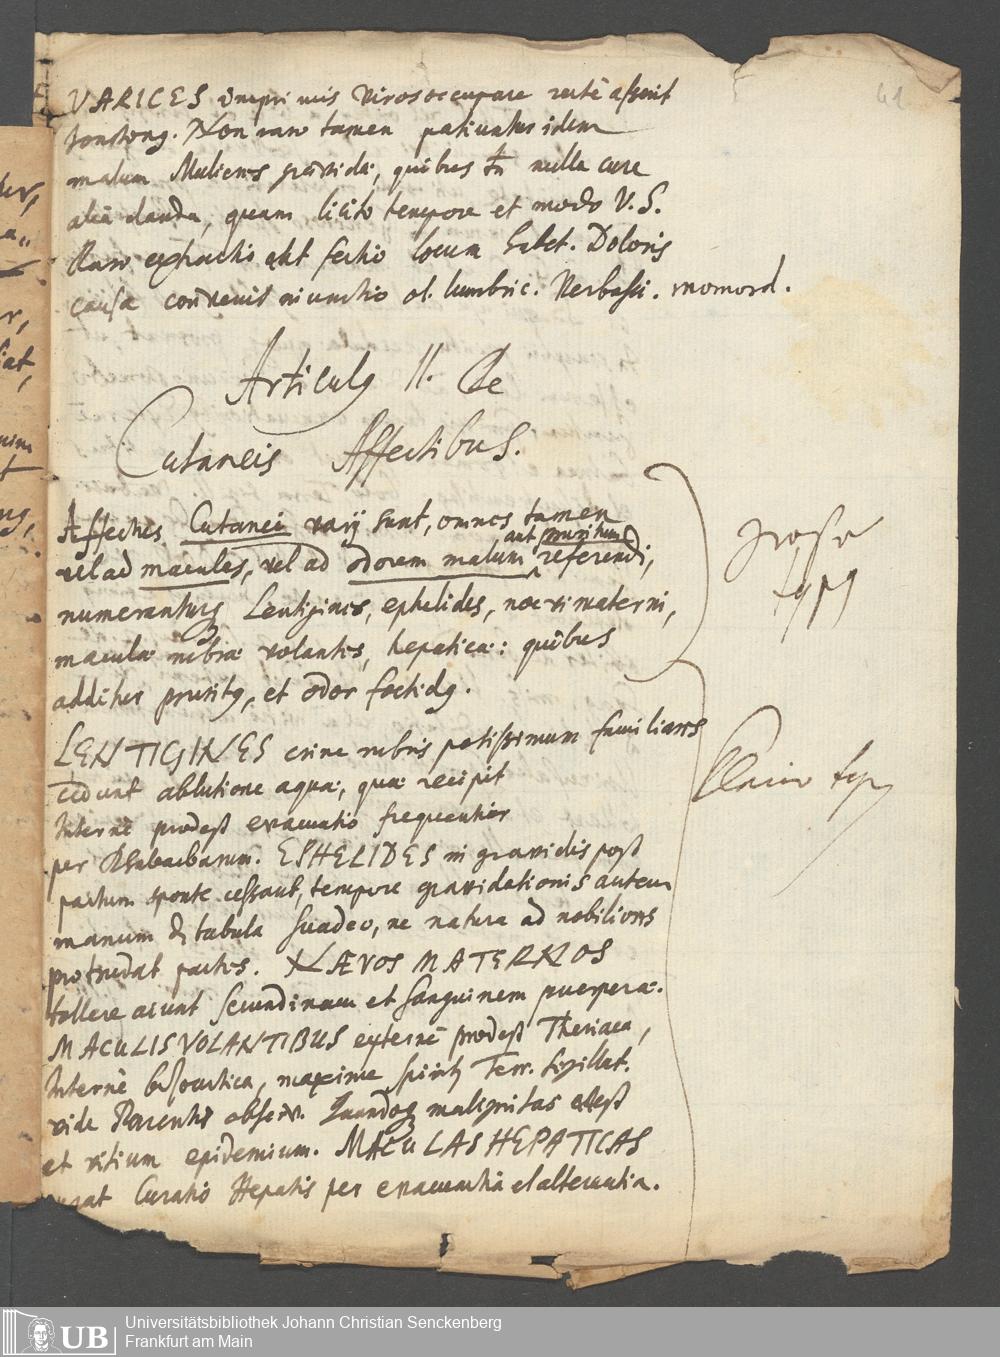 41
VARICES inprimis viros occupare rectè asserit
Jonstong. Non raro tamen patiuntur idem
malum Mulieres gravidæ, quibus tn nulla cura
alia danda, quam licito tempore et modo V. S.
Raro extractio aut sectio locum habet. Doloris
causa convenit inunctio ol. lumbric. Verbasci. momord.
Articulg II. De
Cutaneis Affectibus.
Affectus Cutanei varij sunt, omnes tamen
aut pruritum
vel ad maculas, vel ad odorem malum referendi,
numeranturq Lentigines, ephelides, nævi materni,
maculæ rubræ volantes, hepaticæ: quibus
additur pruritg, et odor foetidg.
grosse
typg
LENTIGINES crine rubris potissimum familiares
cedunt ablutione aquæ, quæ recipit
Internè prodest evacuatio frequentior
per Rhabarbarum. EPHELIDES in gravidis post
partum sponte cessant, tempore gravidationis autem
manum de tabula suadeo, ne natura ad nobiliores
protrudat partes. NÆVOS MATERNOS
tollere aiunt secundinam et sanguinem puerperæ.
MACULIS VOLANTIBUS externè prodest Theriaca,
Internè bezoartica, maxime spirity Terr. sigillat.
vide observ. Quandoq malignitas adest
et vitium epidemium. MACULAS HEPATICAS
curat Curatio Hepatis per evacuantia et alterantia.
Kleine typ
UB
Universitätsbibliothek Johann Christian Senckenberg
Frankfurt am Main